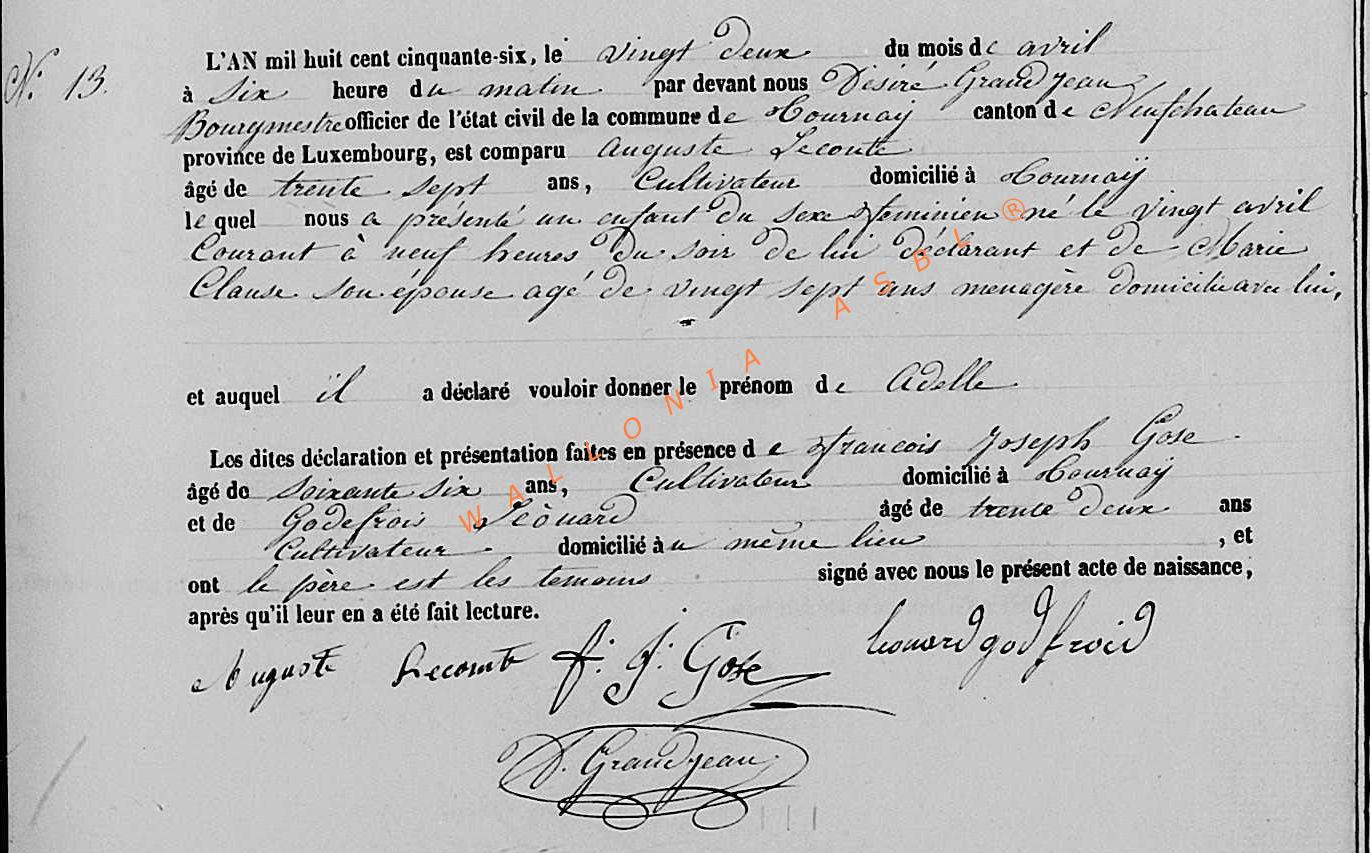 N. 13.
L'AN mil huit cent cinquante-six, le vingt deux du mois de avril
à Six heure du matin par devant nous Désiré Grandjean
Bourgmestre officier de l'état civil de la commune de Tournaÿ canton de Neufchateau
province de Luxembourg, est comparu Auguste Leconte
âgé de trente sept ans, Cultivateur domicilié à Tournaÿ
le quel nous a présenté un enfant du sexe feminien né le vingt avril
Courant à neuf heures du soir de lui déclarant et de Marie
Clause son épouse agé de vingt sept ans menagère domicilie avec lui,
et auquel il a déclaré vouloir donner le prénom de Adelle
Les dites déclaration et présentation faites en présence de francois Joseph Gose
âgé de soixante six ans, Cultivateur domicilié à Tournaÿ
et de Godefrois Léonard âgé de trente deux ans
Cultivateur domicilié au même lieu , et
ont le père est les temoins signé avec nous le présent acte de naissance,
après qu'il leur en a été fait lecture.
Auguste Lecomte f. J. Gose leonard godfroid
D. Grandjean
WALLONIA ASBL ®